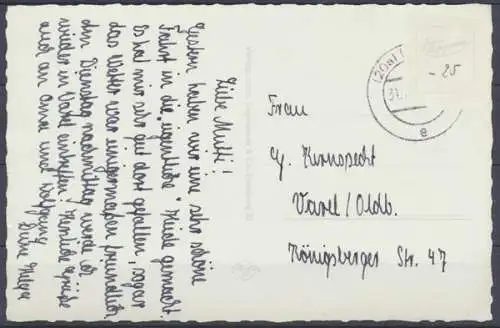 Liebe Mutti!
Gestern haben wir eine sehr schöne
Fahrt in die "eigentliche" Heide gemacht.
Es hat mir sehr gut dort gefallen, sogar
das Wetter war einigermaßen freundlich.
Am Dienstag nachmittag werde ich
wieder in Varel eintreffen! Herzliche Grüße
auch an Oma und Wolfgang
Deine Helga
(20a)
31.
e
- 25
Frau
Kernspecht
Varel/Oldb.
Königsberger Str. 47